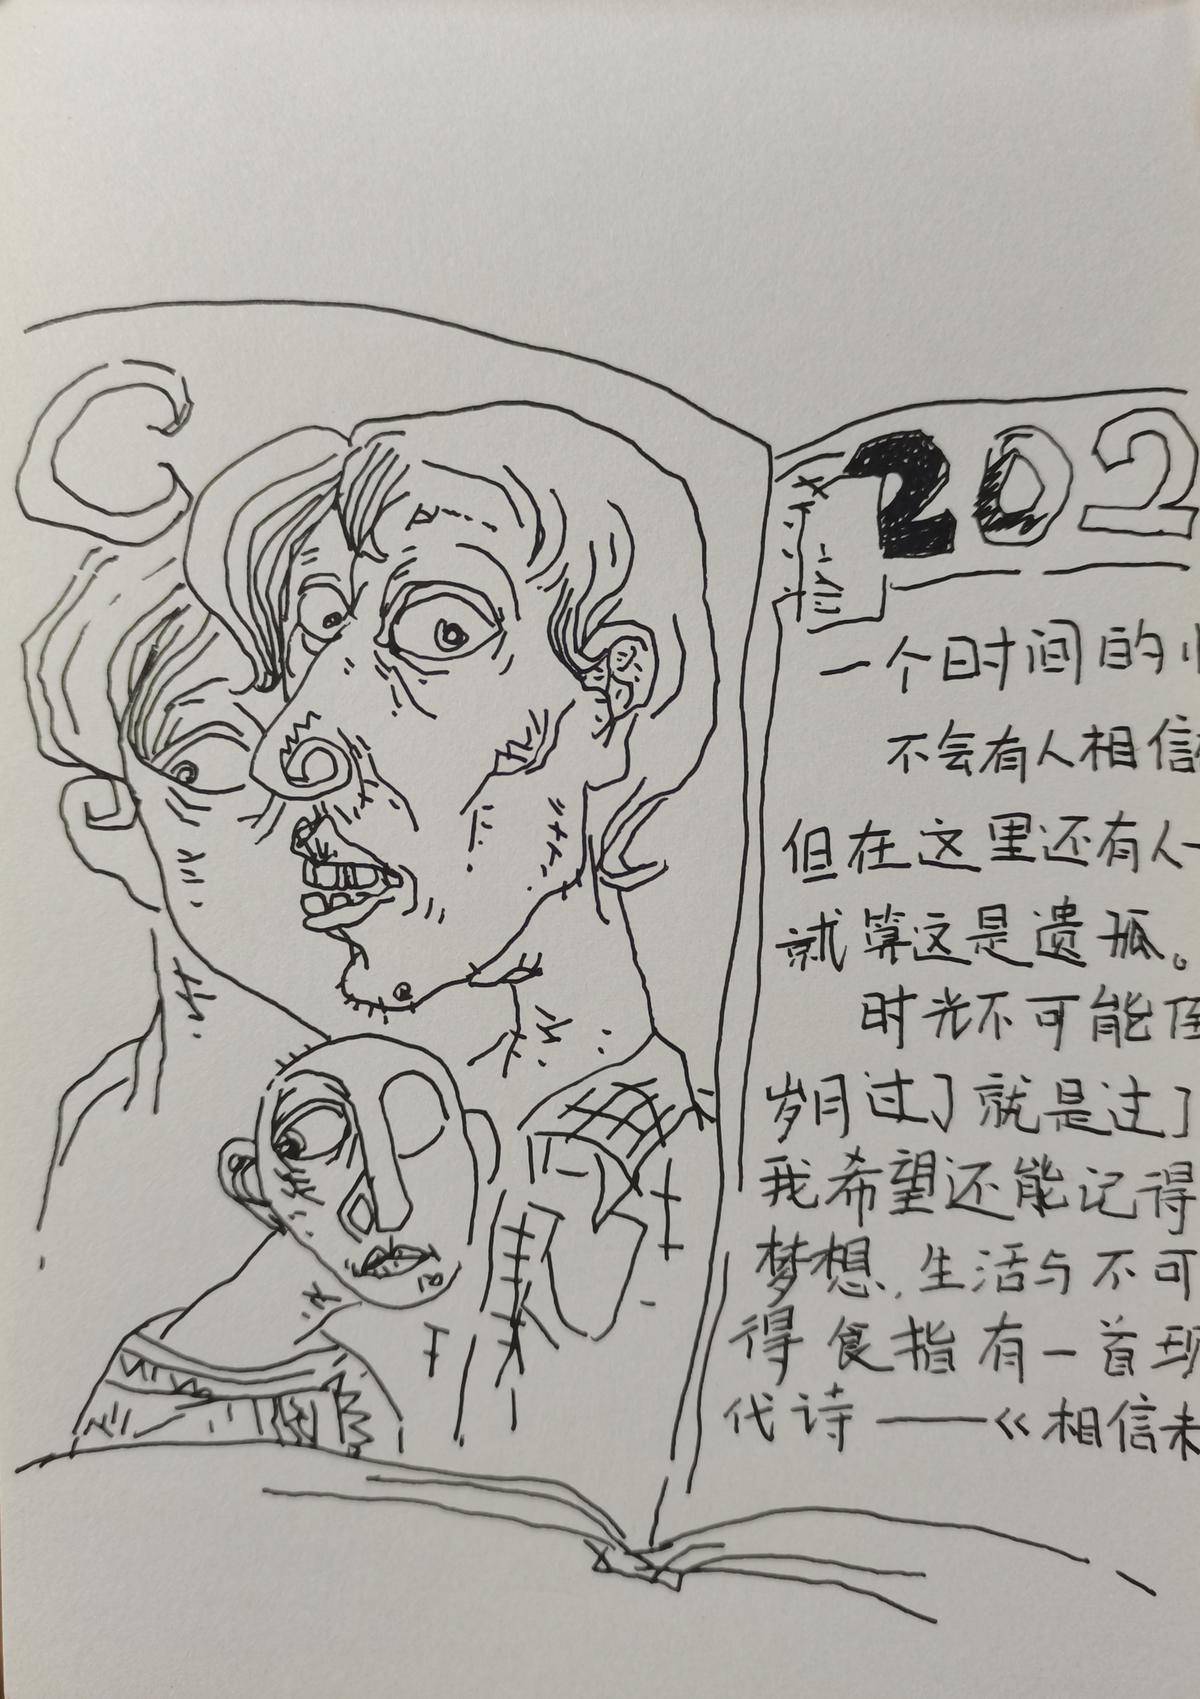 202
一个时间的
不会有人相信
但在这里还有人一
就算这是遗孤。
时光不可能
岁月过了就是过了
我希望还能记得
梦想、生活与不可
得食指有一首现
代诗——《相信未